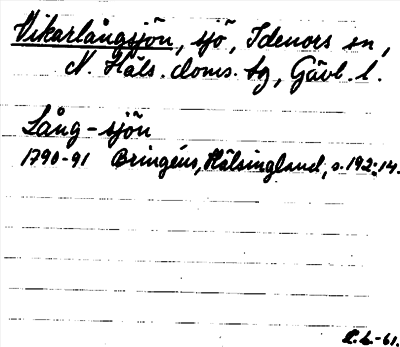 Vikarlångsjön, sjö, Idenors sn,
N. Häls. doms. tg, Gävl. l.
Lång-sjön
1790-91 Bringéus, Hälsingland, s. 192:14.
-61.